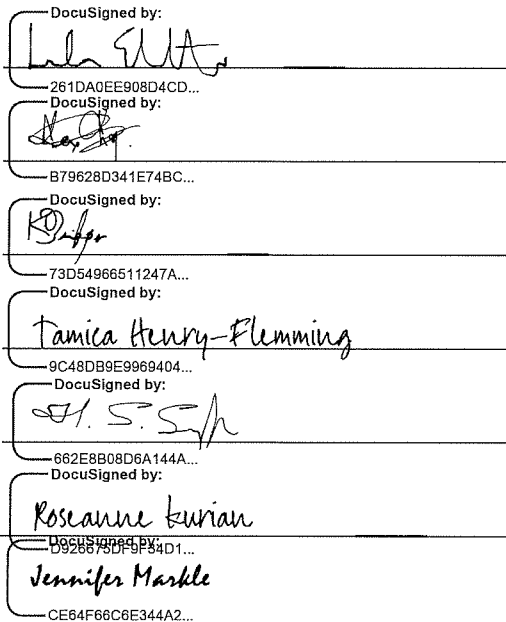 DocuSigned by:
261DA0EE908D4CD...
DocuSigned by:
B79628D341E74BC...
DocuSigned by:
73D54966511247A...
DocuSigned by:
Tamica Henry-Flemming
9C48DB9E9969404...
DocuSigned by:
H. S.
662E8B08D6A144A...
DocuSigned by:
Roseanne kurian
DocuSigned by:
D926675DF9F34D1...
Jennifer Markle
CE64F66C6E344A2...